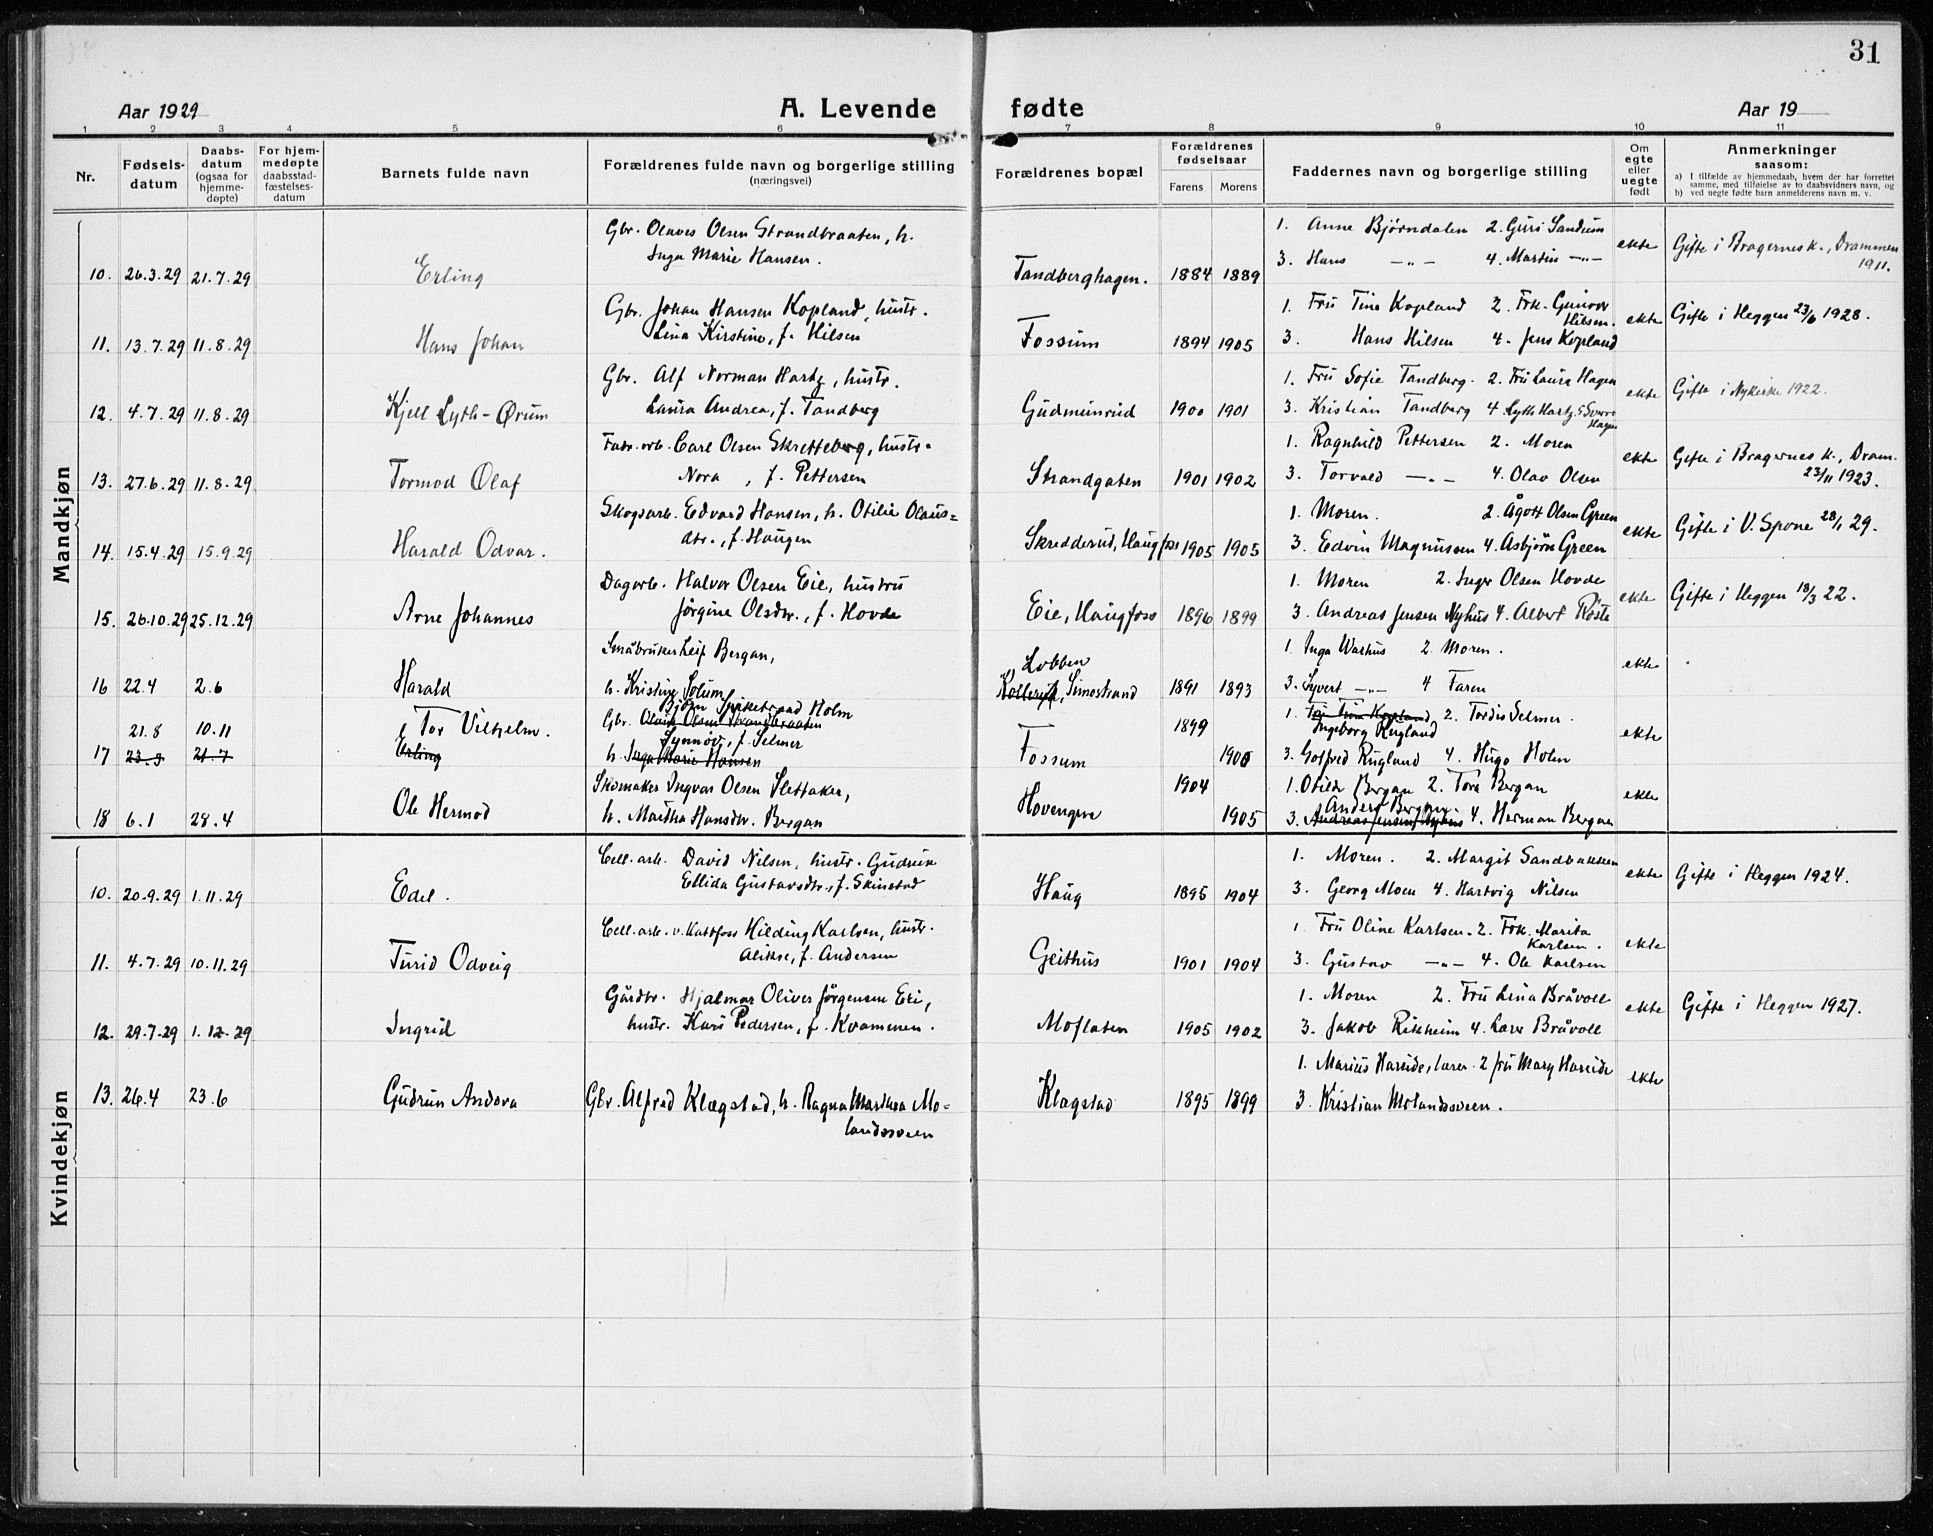 31
Aar 1929 A. Levende fødte Aar 19
1 2 3 4 5 6 7 8 9 10 11
Nr.
Fødsels-
datum
Daabs-
datum
(ogsaa for
hjemme-
døpte)
For hjem-
medøpte
daabsstad-
fæstelses-
datum
Barnets fulde navn
Forældrenes fulde navn og borgerlige stilling
(næringsvei)
Forældrenes bopæl
Forældrenes
fødselsaar
Farens Morens
Faddernes navn og borgerlige stilling
Om
egte
eller
uegte
født
Anmerkninger
saasom:
a) I tilfælde av hjemmedaab, hvem der har forrettet
samme, med tilføielse av to daabsvidners navn, og
b) ved uegte fødte barn anmelderens navn m. v.
Mandkjøn
Gbr. Olaves Olsen Strandbraaten, h. 1. Anne Bjørndalen 2. Guri Sandum
10. 26.3.29 21.7.29 Erling Inga Marie Hansen. Tandberghagen. 1884 1889 3. Hans —„— 4. Martin —„— ekte Gifte i Bragernes k., Drammen
1911.
Gbr. Johan Hansen Kopland, hustr. 1. Fru Tina Kopland 2. Frk. Gunvor
Hilsen.
11. 13.7.29 11.8.29 Hans Johan Lina Kirstine, f. Hilsen Fossum 1894 1905 3. Hans Hilsen 4. Jens Kopland ekte Gifte i Heggen 23/6 1928.
Gbr. Alf Norman Hartz, hustr. 1. Fru Sofie Tandberg. 2. Fru Laura Hagen
12. 4.7.29 11.8.29 Kjell Lyth-Ørum Laura Andrea, f. Tandberg Gudmunrud 1900 1901 3. Kristian Tandberg 4. Lyth Hartz 5 Sverre
Hagen ekte Gifte i Nykirke 1922.
Fabr. arb. Carl Olsen Skretteberg, hustr. 1. Ragnhild Pettersen 2. Moren
13. 27.6.29 11.8.29 Tormod Olaf Nora, f. Pettersen Strandgaten 1901 1902 3. Torvald —„— 4. Olav Olsen ekte Gifte i Bragernes k., Dram.
23/11 1923.
Skogsarb. Edvard Hansen, h. Otilie Olaus- 1. Moren. 2. Ågot Olsen Green
14. 15.4.29 15.9.29 Harald Odvar. dtr., f. Haugen Skredderud, Haugfoss 1905 1905 3. Edvin Magnussen 4. Asbjørn Green ekte Gifte i V. Spone 28/1 29.
Dagarb. Halvor Olsen Eie, hustru 1. Moren 2. Inger Olsen Hovde
15. 26.10.29 25.12.29 Arne Johannes Jørgine Olsdtr., f. Hovde Eie, Haugfoss 1896 1899 3. Andreas Jensen Nyhus 4. Albert Röste ekte Gifte i Heggen 18/3 22.
Småbruker Leif Bergan, Lobben 1. Inga Warhus 2. Moren.
16 22.4 2.6 Harald h. Kristine Solum Simostrand 1891 1893 3. Syvert —„— 4 Faren ekte
Björn Spiketraad Holm
21.8 10.11 Tor Vilhelm. Gbr. Olaves Olsen Strandbraaten 1899 1. Fru Tina Kopland 2. Tordis Selmer.
Synnöv, f. Selmer Ingeborg Rugland
17 23.3 21.7 Erling h. Inga Marie Hansen Fossum 1900 3. Gotfred Rugland 4. Hugo Holm ekte
Skomaker Ingvar Olsen Slettaker, 1904 1. Otilde Bergan 2. Tora Bergan
Anders Bergan.
18 6.1 28.4 Ole Hermod h. Martha Hansdtr. Bergan Hovengen 1905 3. Andreas Jensen Nyhus 4. Herman Bergan ekte
Kvindekjøn
Cell. arb. David Nilsen, hustr. Gudrun 1. Moren. 2. Margit Sandbakken
10. 20.9.29 1.11.29 Edel. Ellida Gustavsdtr., f. Skinstad Haug 1895 1904 3. Georg Moen 4. Hartvig Nilsen ekte Gifte i Heggen 1924.
Cell. arb. v. Kattfoss Hilding Karlsen, hustr. 1. Fru Oline Karlsen. 2. Frk. Marita
Karlsen.
11. 4.7.29 10.11.29 Turid Odveig Alikse, f. Andersen Geithus 1901 1904 3. Gustav —„— 4. Ole Karlsen ekte
Gårdbr. Hjalmar Oliver Jørgensen Eri, 1. Moren 2. Fru Lina Bråvoll
12. 29.7.29 1.12.29 Ingrid hustr. Kari Pedersen, f. Kvammen. Moflaten 1905 1902 3. Jakob Rikheim 4. Lars Bråvoll ekte Gifte i Heggen 1927.
1. Marius Hareide, lærer. 2 fru Mary Hareide
13. 26.4 23.6 Gudrun Andora Gbr. Alfred Klægstad, h. Ragna Marthea Mo-
landssveen Klægstad 1895 1899 3. Kristian Molandssveen. ekte